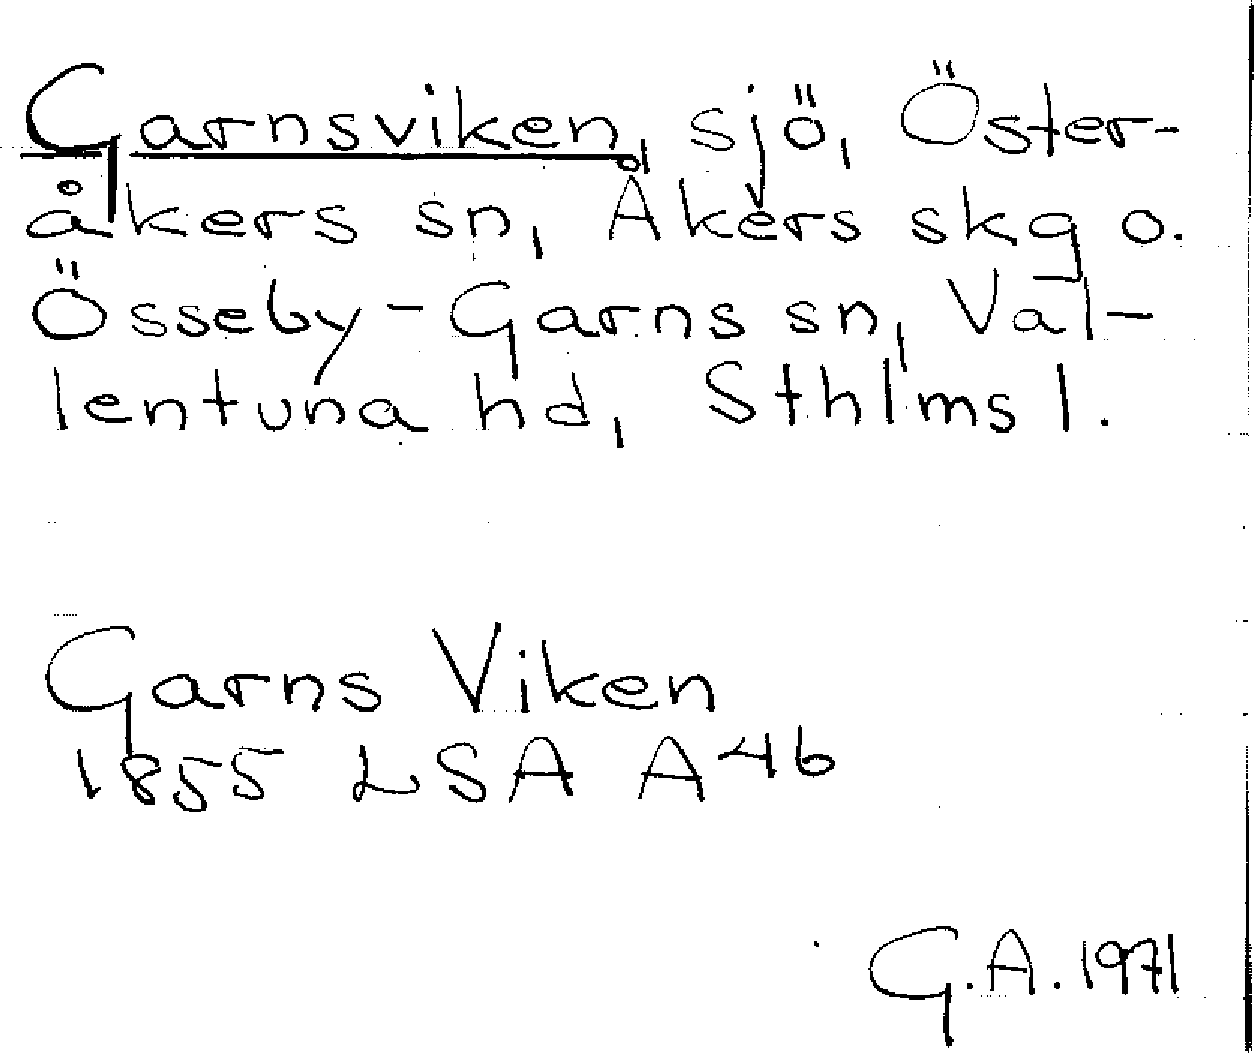 Garnsviken, sjö, Öster-
åkers sn, Åkers skg o.
Össeby-Garns sn, Val-
lentuna hd, Sthlms l.
Garns Viken
1855 LSA A46
G.A. 1971